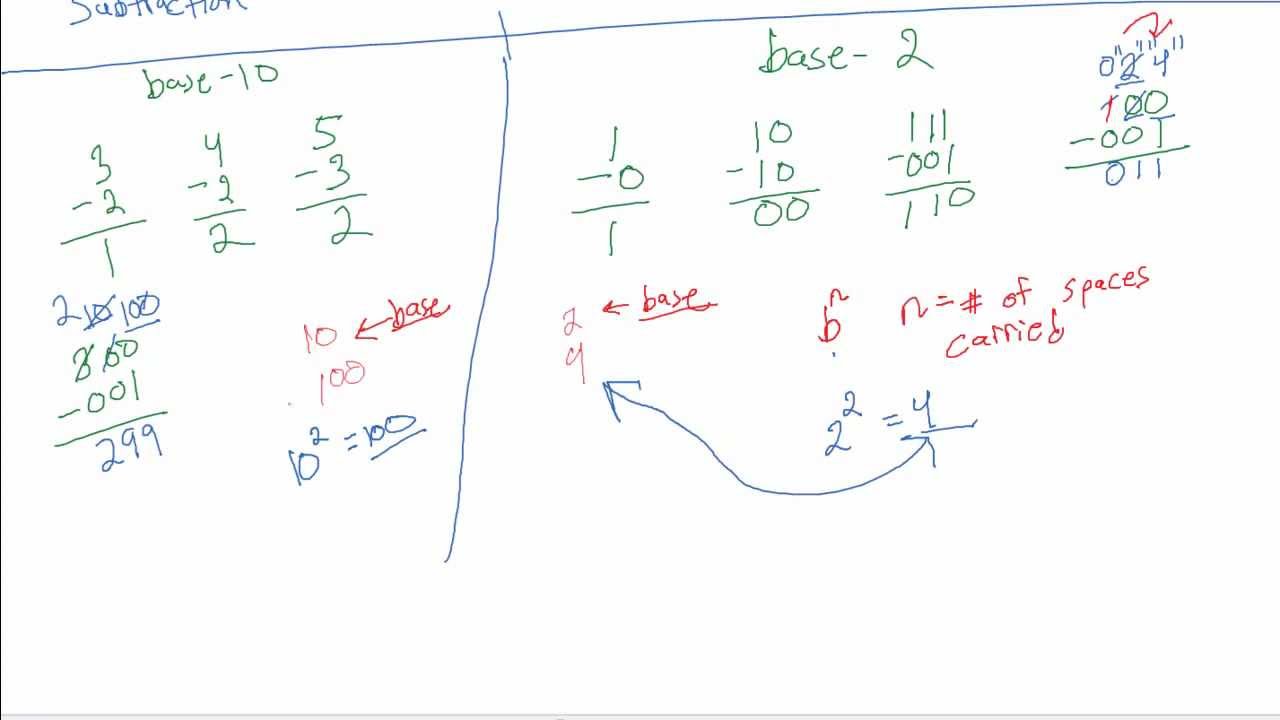 Subtraction
base-10
3
-2
1
4
-2
2
5
-3
2
2 10 100
300
-001
299
10 ← base
100
10² = 100
base-2
1
-0
1
10
-10
00
111
-001
110
0"2""4"
100
-001
011
2 ← base
4
bⁿ
n = # of spaces
carried
2² = 4